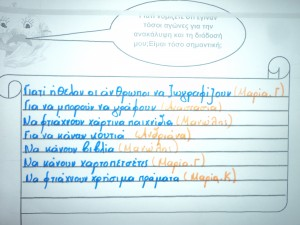 Γιατί νομίζετε ότι έγιναν
τόσοι αγώνες για την
ανακάλυψη και τη διάδοσή
μου; Είμαι τόσο σημαντικό;
Γιατί ήθελαν οι άνθρωποι να ζωγραφίζουν (Μαρία.Γ)
Για να μπορούν να γράφουν (Αναστασία)
Να φτιάχνουν χάρτινα παιχνίδια (Μανώλης)
Για να κάνουν κουτιά (Ανδριάνα)
Να κάνουν βιβλία (Μανώλης)
Να κάνουν χαρτοπετσέτες (Μαρία.Γ)
Να φτιάχνουν χρήσιμα πράματα (Μαρία.Κ)